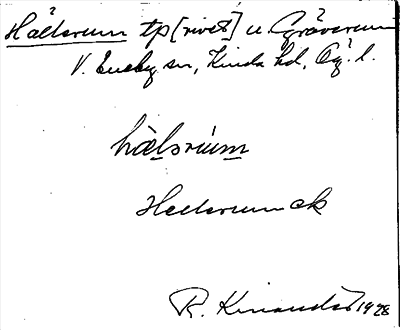 Hälsrum tp [rivet] u. Gröverum
V. Eneby sn, Kinda hd, Ög. l.
hàlsrúm
Helsrum ck
R. Kinander 1928